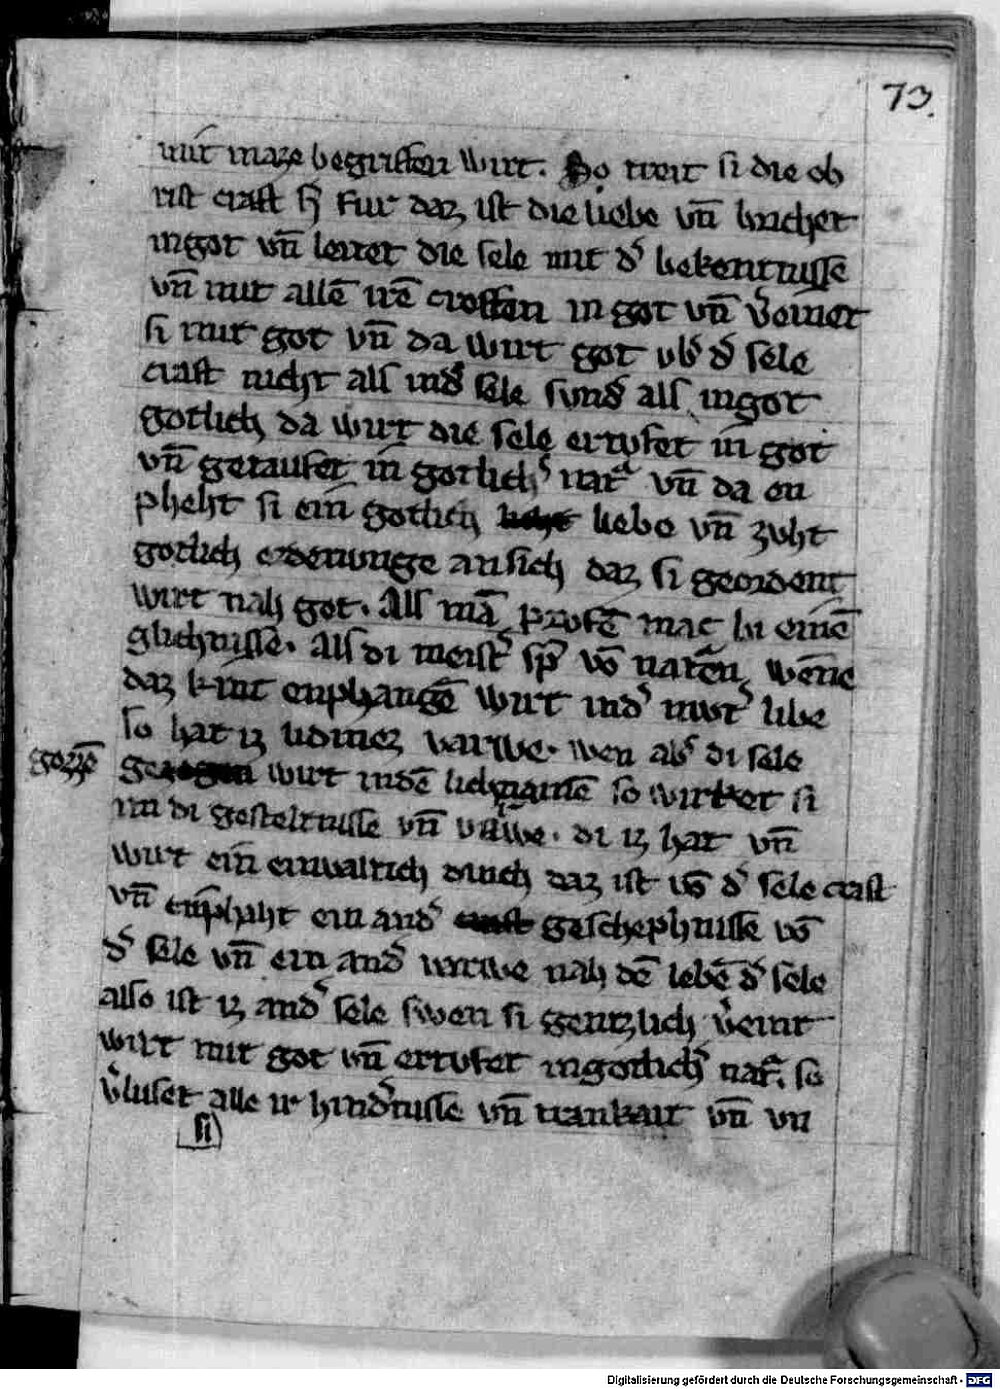 73.
mit maze begriffen wirt. So treit si die ob
rist craft für daz ist die liebe vn̄ brichet
in got vn̄ leitet die sele mit d' bekentnisse
vn̄ mit allē irē creften in got vn̄ v'einet
si mit got vn̄ da wirt got vb' d' sele
craft nicht als in d' sele sund' als in got
gotlich da wirt die sele ertofet in got
vn̄ getaufet in gotlich' nat' vn̄ da en
pheht si ein gotlich liebe vn̄ zuht
gotlich ordenunge an sich daz si geordent
wirt nah got. Als mā prufē mac bi einē
glichnisse. Als di meist' sp̄ vō naturen wēne
daz kint enphangē wirt in d' mut' libe
so hat iz lidmez varwe. wen ab' di sele
gozzē wirt in dē lichnamē so wirket si
im di gesteltnisse vn̄ varwe. di iz hat vn̄
wirt ein einvaltich dinch daz ist vō d' sele craft
vn̄ enphaht ein and' geschephnisse vō
d' sele vn̄ ein and' varwe nah dē lebē d' sele
also ist iz and' sele swen si gentzlich v'eint
wirt mit got vn̄ ertofet in gotlich' nat'. so
v'luset alle ir hind'nisse vn̄ crankait vn̄ vn
si
Digitalisierung gefördert durch die Deutsche Forschungsgemeinschaft - DFG